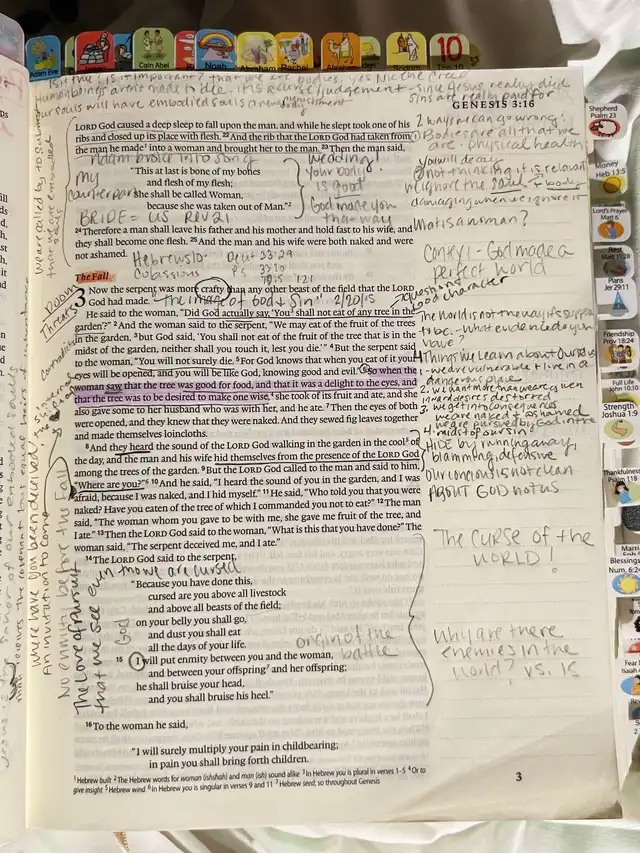 Adam Eve
Cain Abel
Noah
Abraham
Rachel
10
Is it important? that we are bodies, yes
Human beings arent made to die - it is a curse/judgement - since Jesus really died
our souls will have embodied souls
sins are really paid for
GENESIS 3:16
LORD God caused a deep sleep to fall upon the man, and while he slept took one of his
ribs and closed up its place with flesh. 22 And the rib that the LORD God had taken from
the man he made1 into a woman and brought her to the man. 23 Then the man said,
Adam broke into song
"This at last is bone of my bones
and flesh of my flesh;
she shall be called Woman,
because she was taken out of Man."2
my
counterpart
BRIDE = US REV 21
wedding!
Your body
is good
God made you
that way
24 Therefore a man shall leave his father and his mother and hold fast to his wife, and
they shall become one flesh. 25 And the man and his wife were both naked and were
not ashamed.
Hebrews 1:
Colossians
The Fall
3 Now the serpent was more crafty than any other beast of the field that the LORD
God had made.
"the image of God & Sin" 2/20/15
He said to the woman, "Did God actually say, 'You shall not eat of any tree in the
garden'?" 2 And the woman said to the serpent, "We may eat of the fruit of the trees
in the garden, 3 but God said, 'You shall not eat of the fruit of the tree that is in the
midst of the garden, neither shall you touch it, lest you die.'" 4 But the serpent said
to the woman, "You will not surely die. 5 For God knows that when you eat of it your
eyes will be opened, and you will be like God, knowing good and evil." 6 So when the
woman saw that the tree was good for food, and that it was a delight to the eyes, and
that the tree was to be desired to make one wise,4 she took of its fruit and ate, and she
also gave some to her husband who was with her, and he ate. 7 Then the eyes of both
were opened, and they knew that they were naked. And they sewed fig leaves together
and made themselves loincloths.
8 And they heard the sound of the LORD God walking in the garden in the cool5 of
the day, and the man and his wife hid themselves from the presence of the LORD God
among the trees of the garden. 9 But the LORD God called to the man and said to him,
"Where are you?"6 10 And he said, "I heard the sound of you in the garden, and I was
afraid, because I was naked, and I hid myself." 11 He said, "Who told you that you were
naked? Have you eaten of the tree of which I commanded you not to eat?" 12 The man
said, "The woman whom you gave to be with me, she gave me fruit of the tree, and
I ate." 13 Then the LORD God said to the woman, "What is this that you have done?" The
woman said, "The serpent deceived me, and I ate."
14 The LORD God said to the serpent,
"Because you have done this,
cursed are you above all livestock
and above all beasts of the field;
on your belly you shall go,
and dust you shall eat
all the days of your life.
15 I will put enmity between you and the woman,
and between your offspring7 and her offspring;
he shall bruise your head,
and you shall bruise his heel."
God
origin of the
battle
16 To the woman he said,
"I will surely multiply your pain in childbearing;
in pain you shall bring forth children.
1 Hebrew built 2 The Hebrew words for woman (ishshah) and man (ish) sound alike 3 In Hebrew you is plural in verses 1–5 4 Or to
give insight 5 Hebrew wind 6 In Hebrew you is singular in verses 9 and 11 7 Hebrew seed; so throughout Genesis
3
2 ways we can go wrong:
Bodies are all that we
are - Physical health
you will decay
not thinking it is relevant
ignore the soul + body
damaging when we ignore it
What is a woman?
Context - God made a
perfect world
questions
God character
The world is not the way its supposed
to be - what evidence do you
have?
4 Things we learn about ourselves
1 - we are vulnerable + live in a
dangerous place
2. we want more than we are given
inward desires distorted
3. we get into consequences
we are naked + ashamed
4. we are pursued by God in the
midst of our sin
HIDE by running away,
blamming, defensive
our concious is not clean
ABOUT GOD not us
THE CURSE OF the
WORLD!
Why are there
enemies in the
world? vs. 15
Doom
Threats
where have you been deceived
An invitation to come
No enmity before the fall
The Love of pursuit
that we see even though we are cursed
Shepherd
Psalm 23
Money
Heb 13:5
Lord's Prayer
Matt 6
Rest
Matt 11:28
Plans
Jer 29:11
Friendship
Prov 18:24
Full Life
John 10:10
Strength
Joshua 1:9
Thankfulness
Psalm 118
Blessings
Num. 6:24